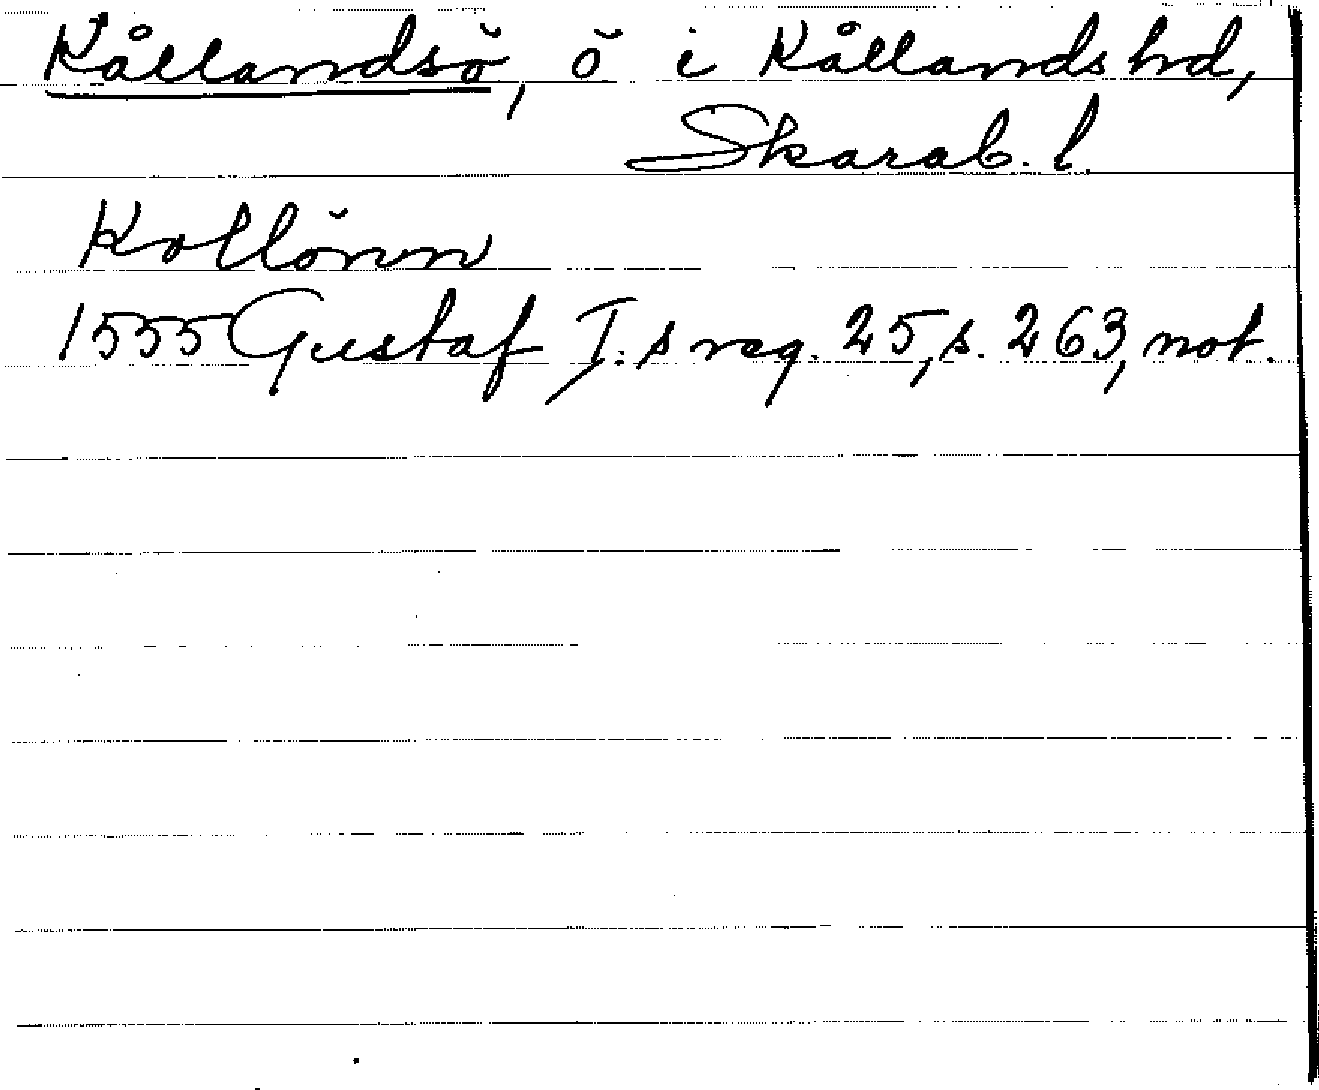 Kållandsö, ö i Kållands hd,
Skarab. l.
Kollönn
1555 Gustaf I:s reg. 25, s. 263, not.